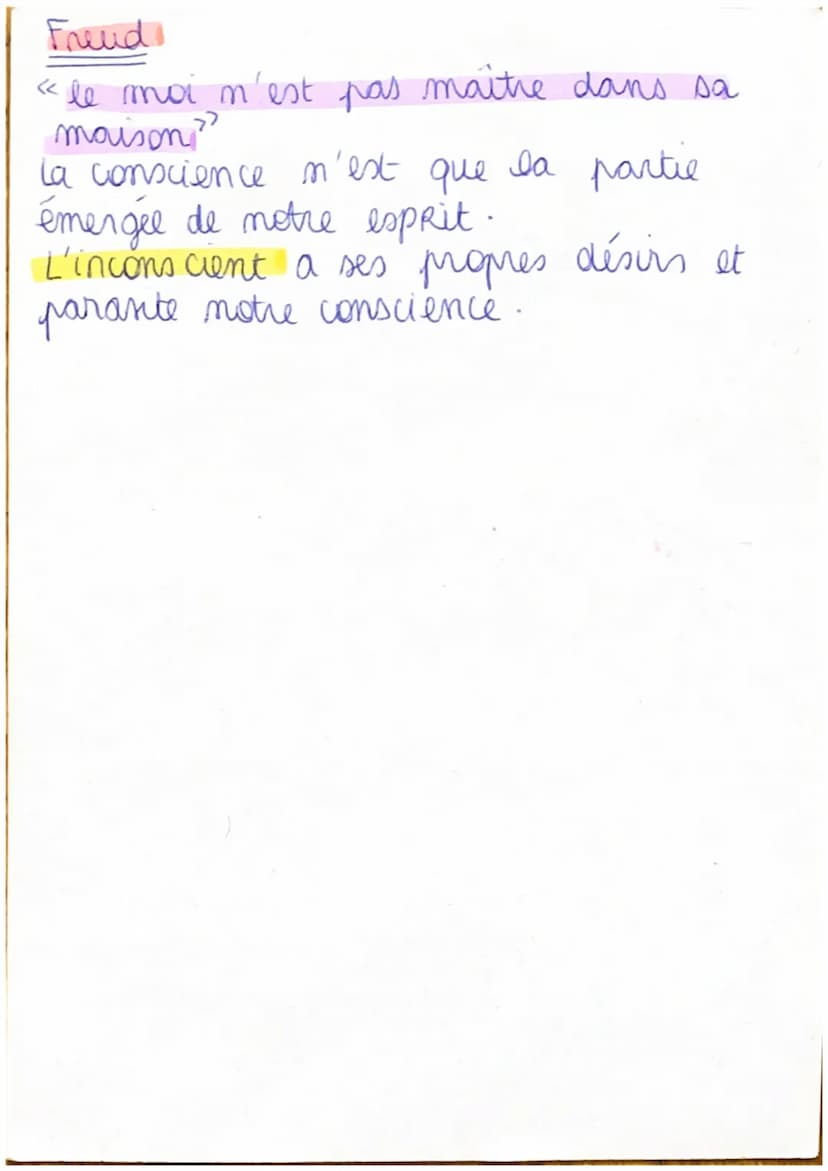 Freud
« le moi n'est pas maître dans sa
maison"
La conscience n'est que la partie
émergée de notre esprit.
L'inconscient a ses propres désirs et
parasite notre conscience.